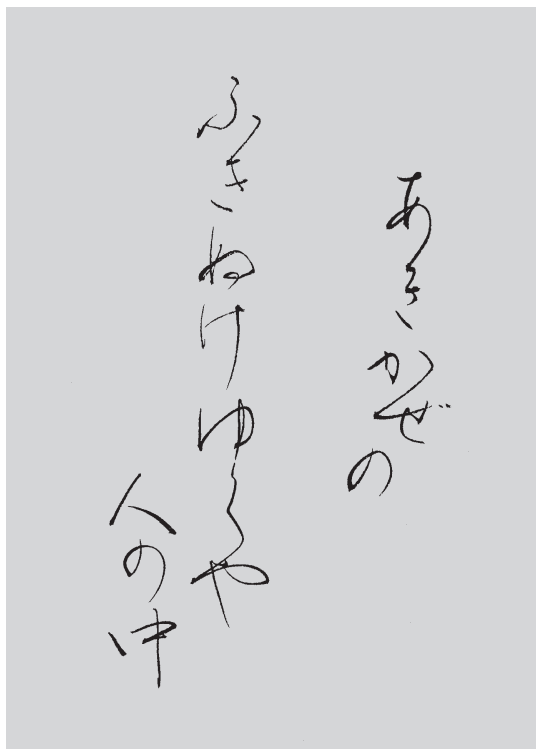 あきかぜの
ふきぬけゆくや
人の中